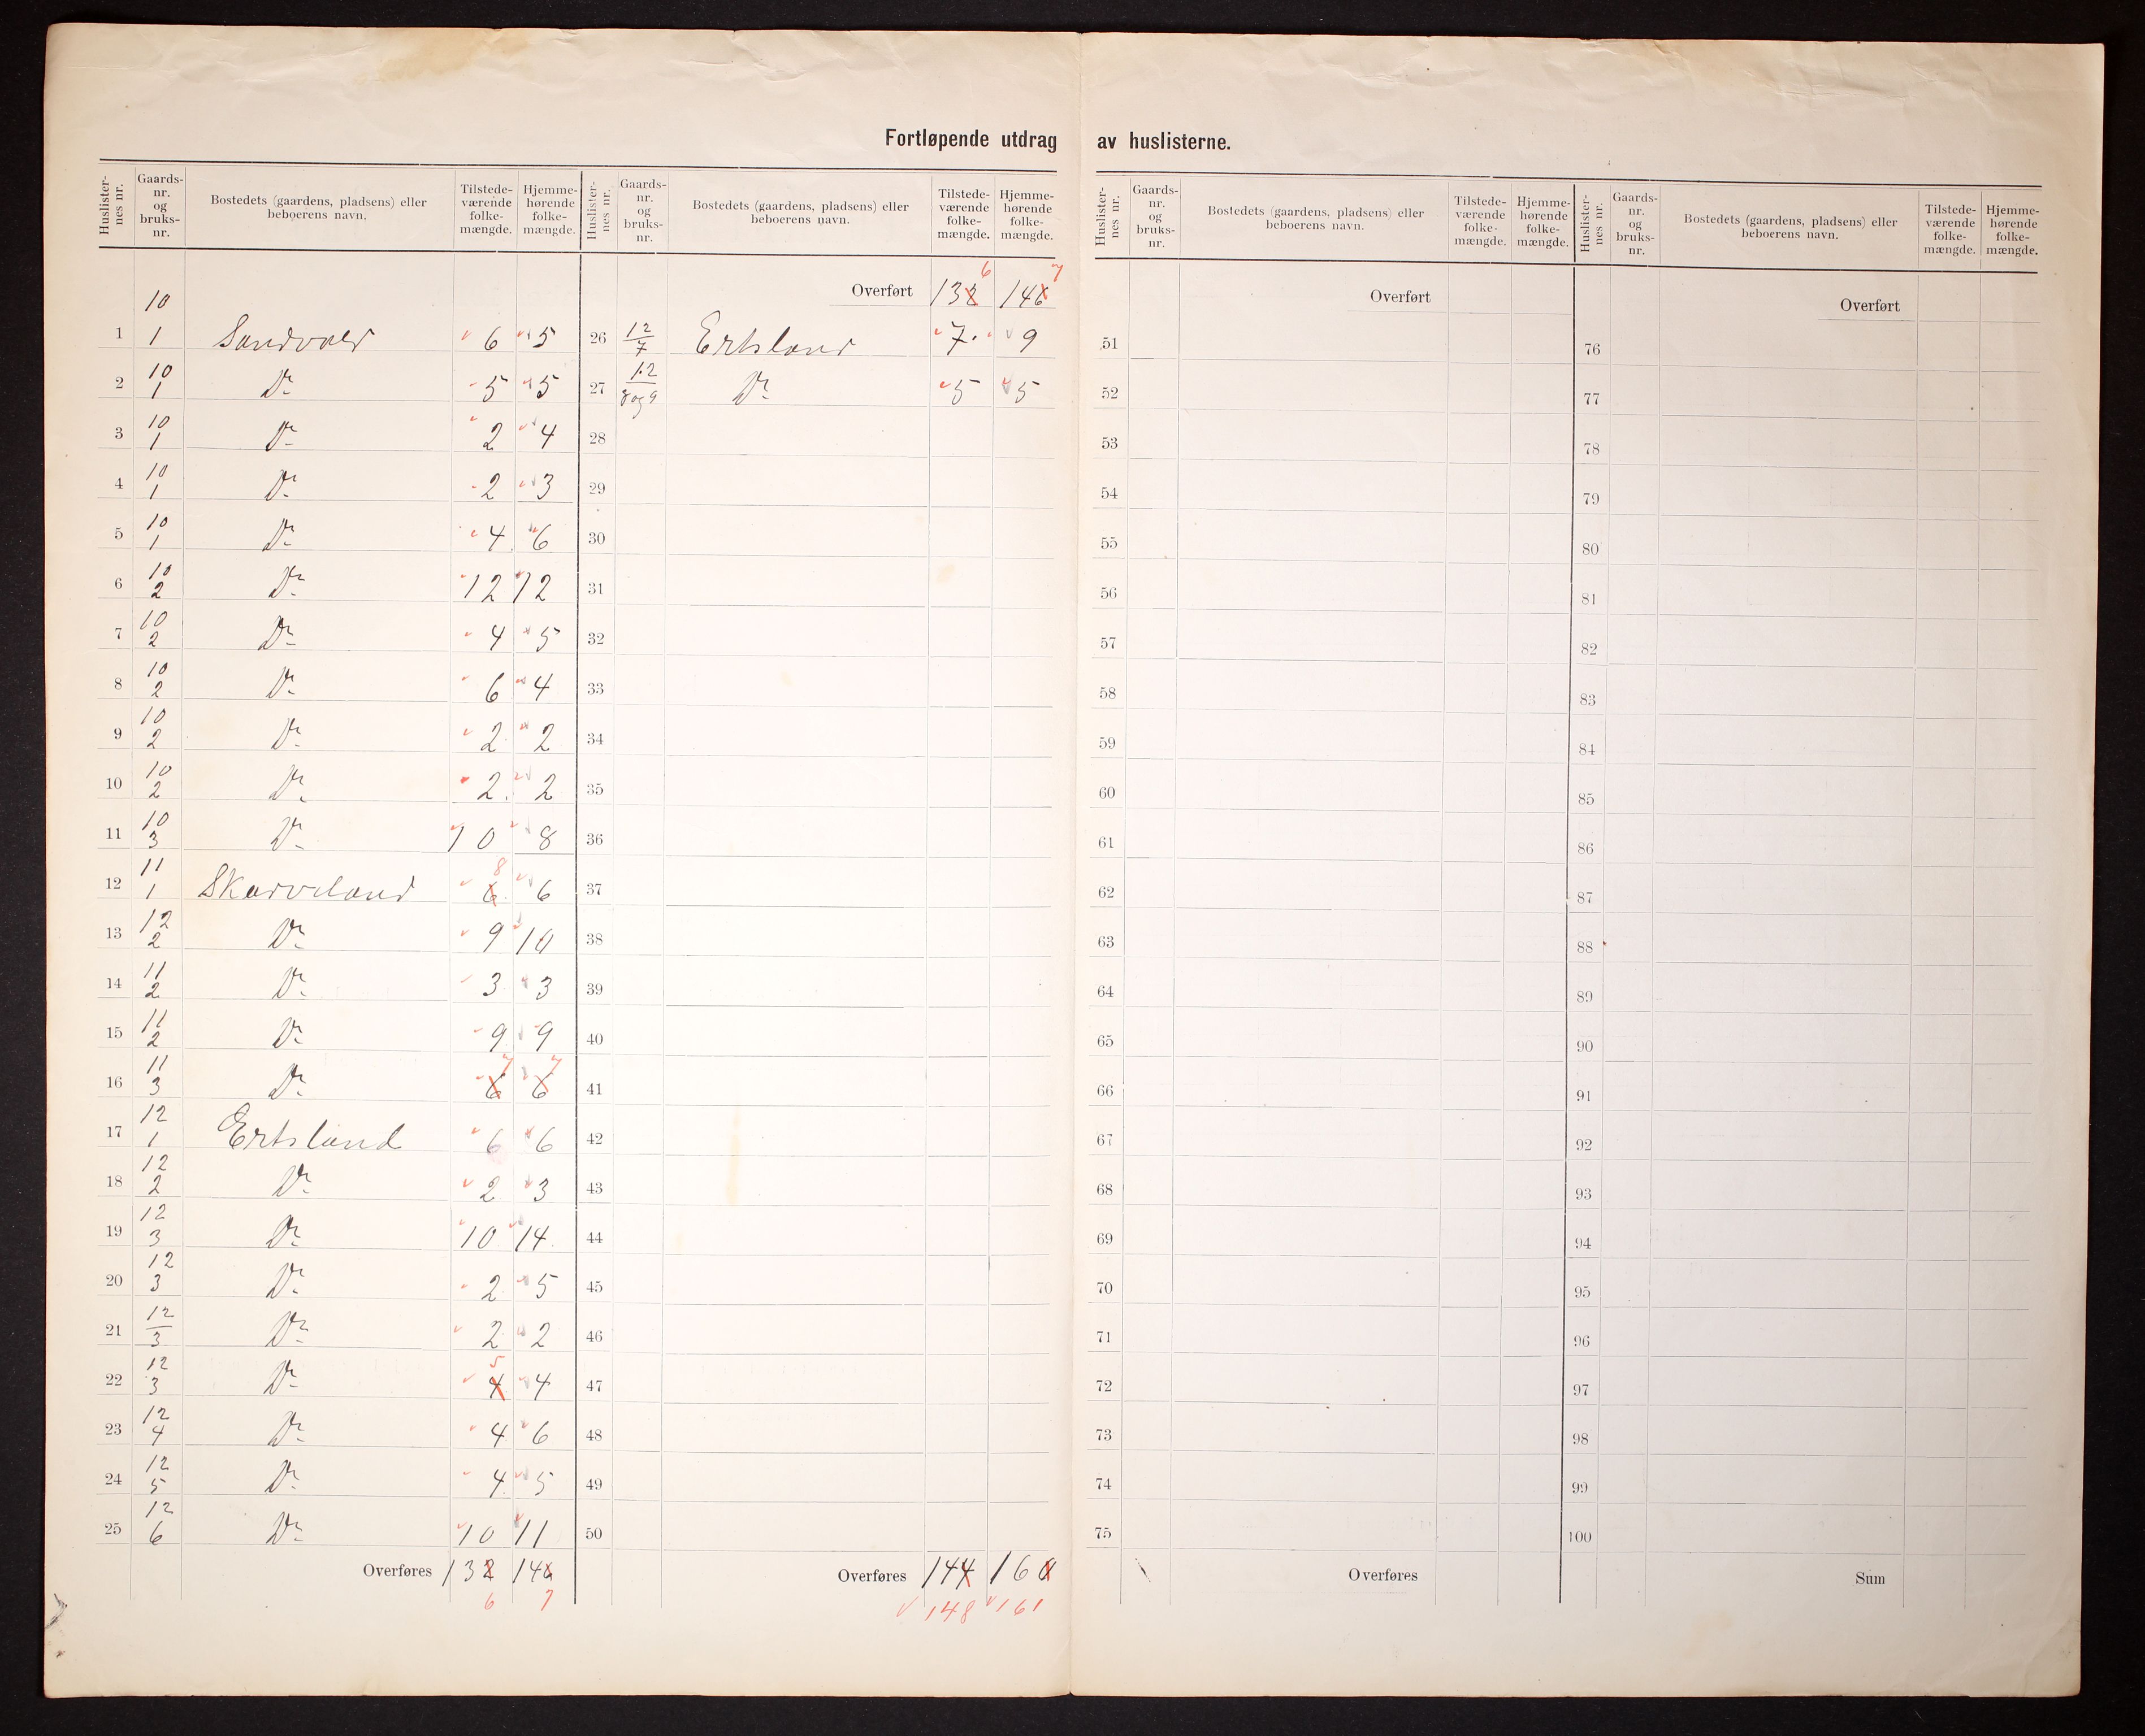 Fortløpende utdrag av huslisterne.
Huslisternes nr. | Gaardsnr. og bruksnr. | Bostedets (gaardens, pladsens) eller beboerens navn. | Tilstedeværende folkemængde. | Hjemmehørende folkemængde.
1 | 10 1 | Sandvold | 6 | 5
2 | 10 1 | Do | 5 | 5
3 | 10 1 | Do | 2 | 4
4 | 10 1 | Do | 2 | 3
5 | 10 1 | Do | 4 | 6
6 | 10 2 | Do | 12 | 12
7 | 10 2 | Do | 4 | 5
8 | 10 2 | Do | 6 | 4
9 | 10 2 | Do | 2 | 2
10 | 10 2 | Do | 2 | 2
11 | 10 3 | Do | 10 | 8
12 | 11 1 | Skarveland | 6 8 | 6
13 | 12 2 | Do | 9 | 10
14 | 11 2 | Do | 3 | 3
15 | 11 2 | Do | 9 | 9
16 | 11 3 | Do | 6 7 | 6 7
17 | 12 1 | Ertsland | 6 | 6
18 | 12 2 | Do | 2 | 3
19 | 12 3 | Do | 10 | 14
20 | 12 3 | Do | 2 | 5
21 | 12 3 | Do | 2 | 2
22 | 12 3 | Do | 4 5 | 4
23 | 12 4 | Do | 4 | 6
24 | 12 5 | Do | 4 | 5
25 | 12 6 | Do | 10 | 11
Overføres 132 146
6 7
Huslisternes nr. | Gaardsnr. og bruksnr. | Bostedets (gaardens, pladsens) eller beboerens navn. | Tilstedeværende folkemængde. | Hjemmehørende folkemængde.
6 7
Overført 132 146
26 | 12 7 | Ertsland | 7 | 9
27 | 12 8 og 9 | Do | 5 | 5
28
29
30
31
32
33
34
35
36
37
38
39
40
41
42
43
44
45
46
47
48
49
50
Overføres 144 160
148 161
Huslisternes nr. | Gaardsnr. og bruksnr. | Bostedets (gaardens, pladsens) eller beboerens navn. | Tilstedeværende folkemængde. | Hjemmehørende folkemængde.
Overført
51
52
53
54
55
56
57
58
59
60
61
62
63
64
65
66
67
68
69
70
71
72
73
74
75
Overføres
Huslisternes nr. | Gaardsnr. og bruksnr. | Bostedets (gaardens, pladsens) eller beboerens navn. | Tilstedeværende folkemængde. | Hjemmehørende folkemængde.
Overført
76
77
78
79
80
81
82
83
84
85
86
87
88
89
90
91
92
93
94
95
96
97
98
99
100
Sum